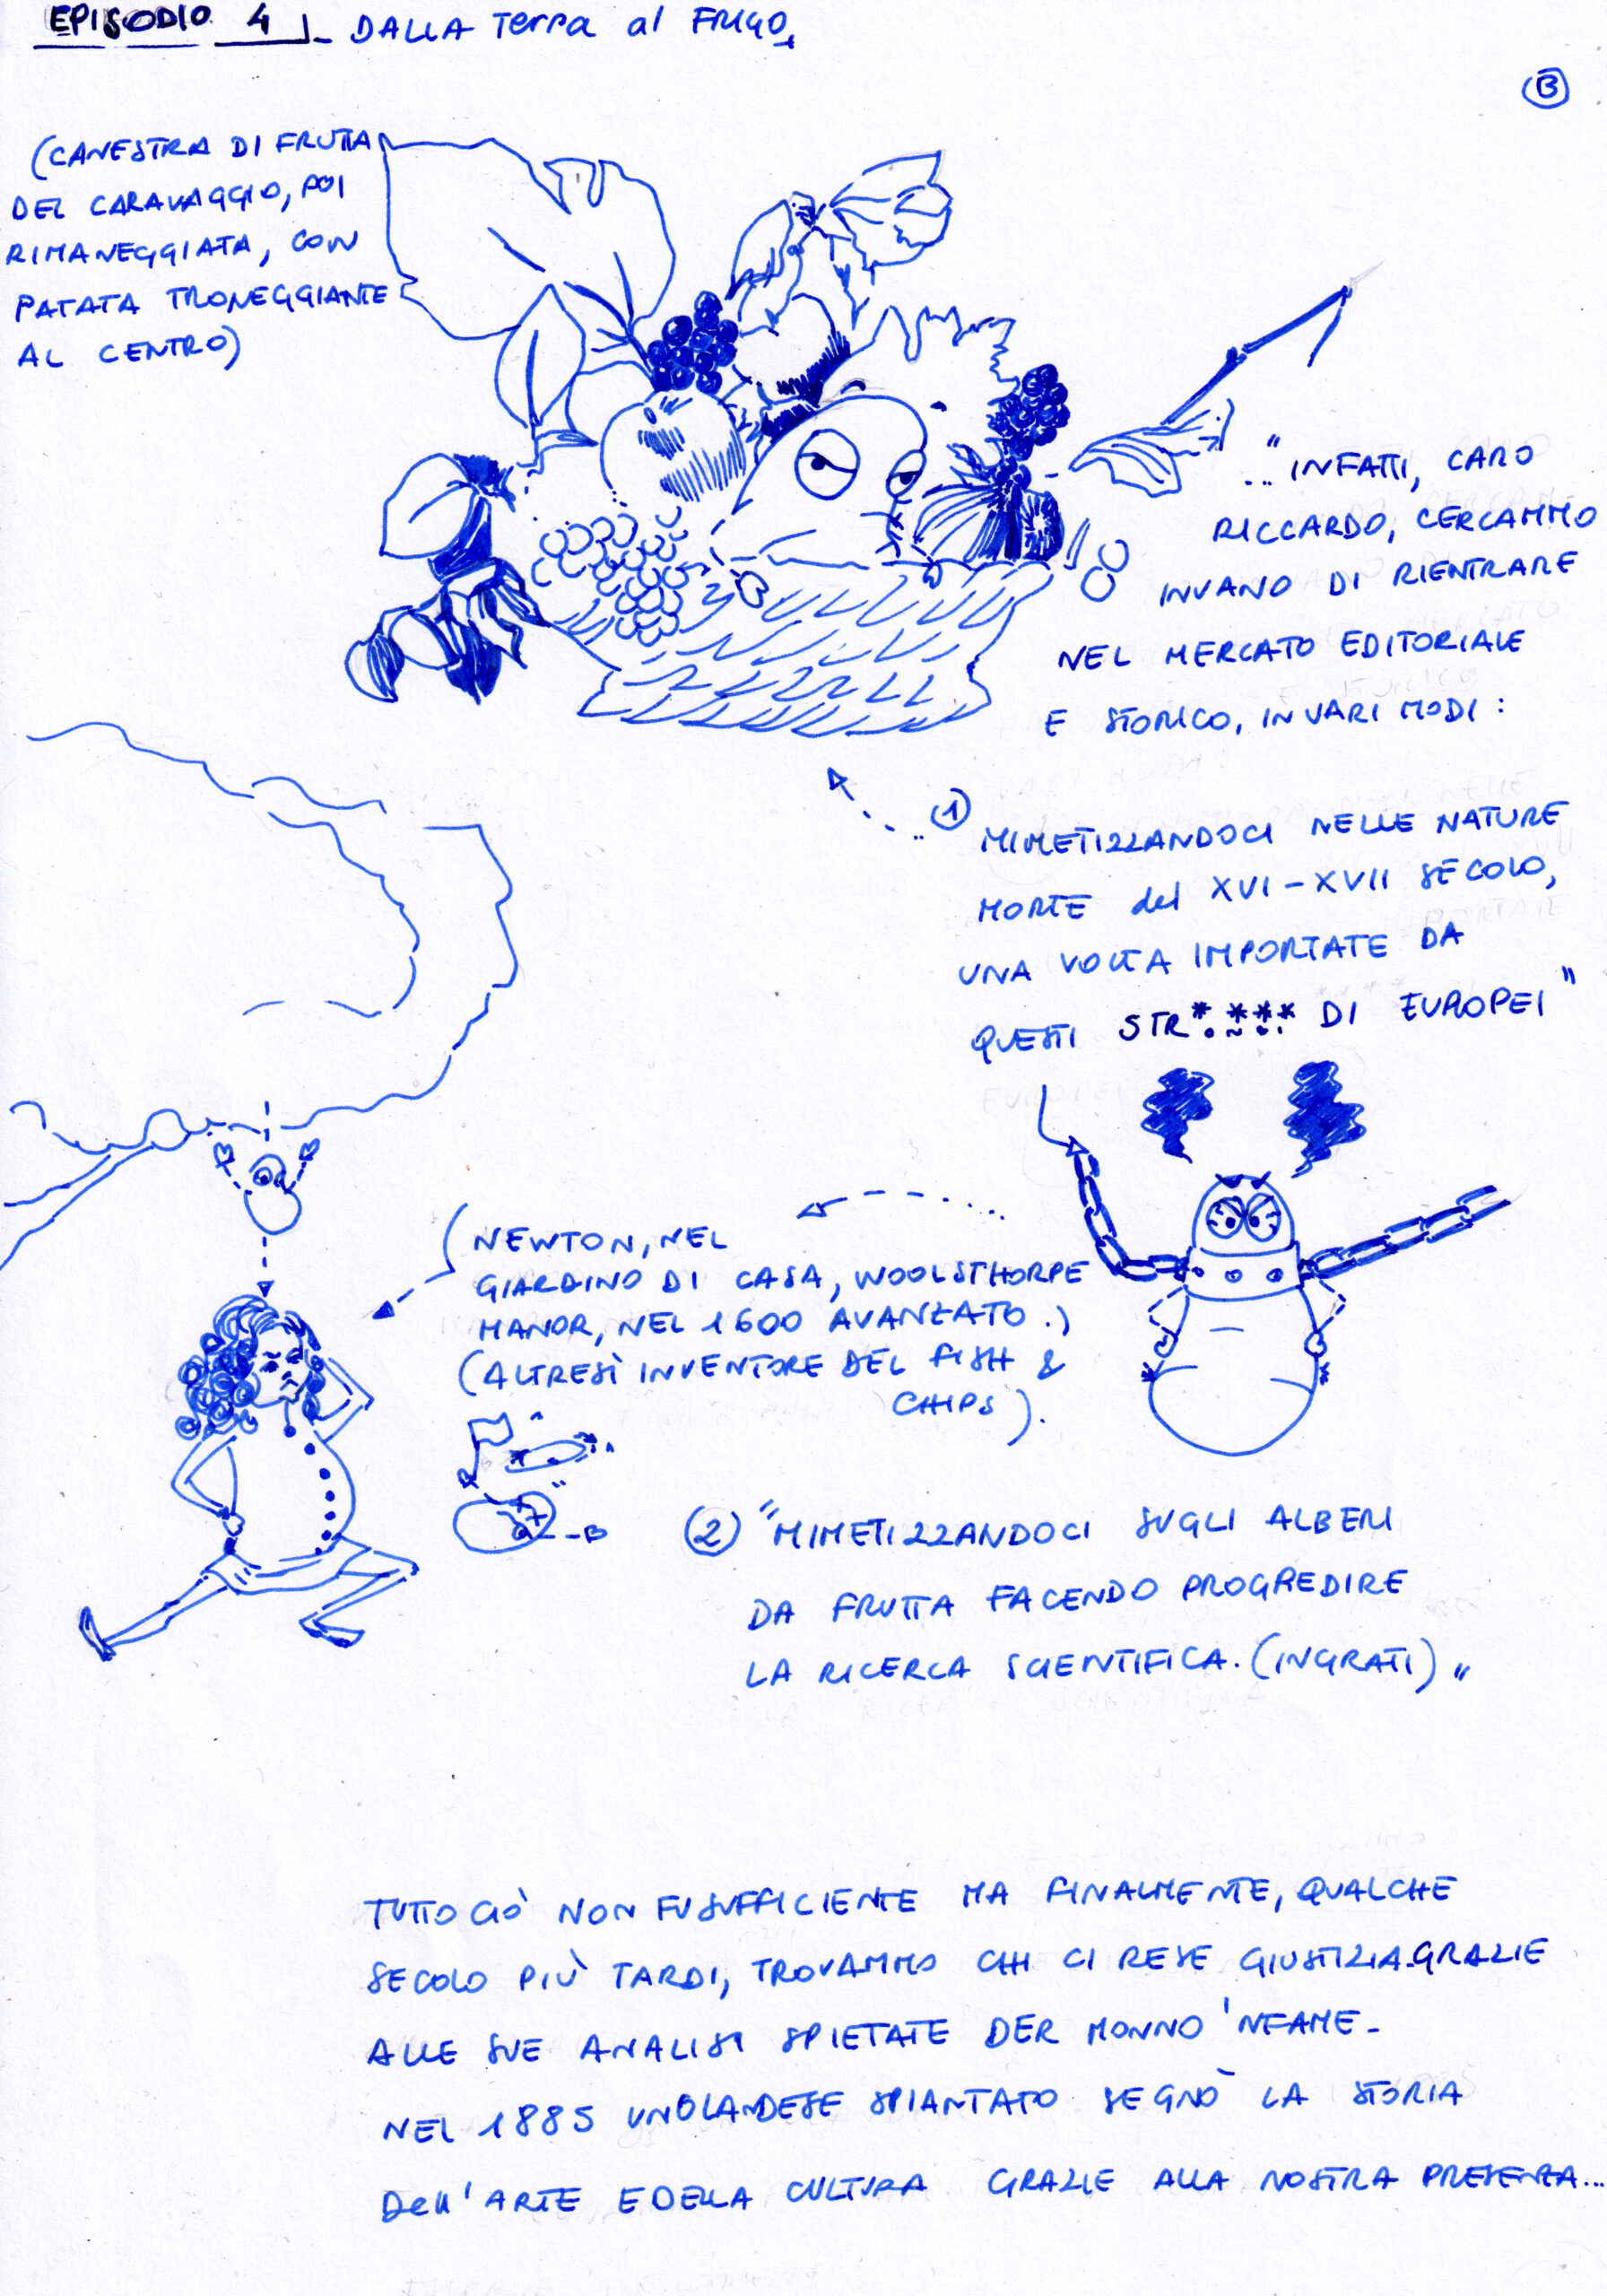 EPISODIO 4 - DALLA Terra al FRIGO
B
(CANESTRA DI FRUTTA
DEL CARAVAGGIO, POI
RIMANEGGIATA, CON
PATATA TRONEGGIANTE
AL CENTRO)
"INFATTI, CARO
RICCARDO, CERCAMMO
INVANO DI RIENTRARE
NEL MERCATO EDITORIALE
E STORICO, IN VARI MODI:
1 MIMETIZZANDOCI NELLE NATURE
MORTE del XVI-XVII SECOLO,
UNA VOLTA IMPORTATE DA
QUESTI STR**** DI EUROPEI"
(NEWTON, NEL
GIARDINO DI CASA, WOOLSTHORPE
MANOR, NEL 1600 AVANZATO.)
(ALTRESÌ INVENTORE DEL FISH &
CHIPS).
2 "MIMETIZZANDOCI SUGLI ALBERI
DA FRUTTA FACENDO PROGREDIRE
LA RICERCA SCIENTIFICA. (INGRATI)"
TUTTO CIÒ NON FU SUFFICIENTE MA FINALMENTE, QUALCHE
SECOLO PIÙ TARDI, TROVAMMO CHI CI RESE GIUSTIZIA. GRAZIE
ALLE SUE ANALISI SPIETATE DER MONNO 'NFAME-
NEL 1885 UN OLANDESE SPIANTATO SEGNÒ LA STORIA
Dell'ARTE E DELLA CULTURA GRAZIE ALLA NOSTRA PRESENZA...